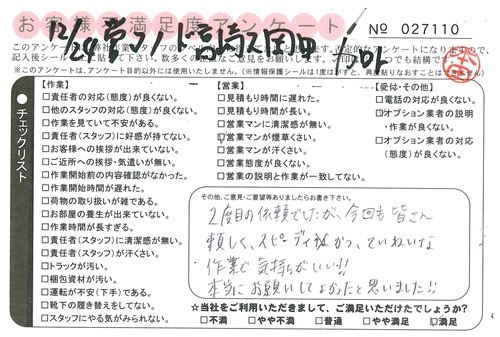 お客様満足度アンケート
№ 027110
12/29
このアンケートは弊社
記入後シール
※このアンケートは、アンケート目的以外には使用いたしません。(※情報保護シールは1度はがすと、再度貼りなおすことはできません)
チェックリスト
【作業】
□責任者の対応(態度)が良くない。
□他のスタッフの対応(態度)が良くない。
□作業を見ていて不安がある。
□責任者(スタッフ)に好感が持てない。
□お客様への挨拶が出来ていない。
□ご近所への挨拶・気遣いが無い。
□作業開始前の内容確認がなかった。
□作業開始時間が遅れた。
□荷物の取り扱いが雑である。
□お部屋の養生が出来ていない。
□作業時間が長すぎる。
□責任者(スタッフ)に清潔感が無い。
□責任者(スタッフ)が汗くさい。
□トラックが汚い。
□梱包資材が汚い。
□運転が不安(下手)である。
□靴下の履き替えをしてない。
□スタッフにやる気がみられない。
【営業】
□見積もり時間に遅れた。
□見積もり時間が長い。
□営業マンに清潔感が無い。
□営業マンが煙草くさい。
□営業マンが汗くさい。
□営業態度が良くない。
□営業の説明と作業が一致してない。
【受付・その他】
□電話の対応が良くない。
□オプション業者の説明
・作業が良くない。
□オプション業者の対応
(態度)が良くない。
その他、ご意見・ご要望等ありましたらお書き下さい。
2度目の依頼でしたが、今回も皆さん
頼しく、スピーディ且がつ、ていねいな
作業で気持ちがいい!!
本当にお願いしてよかったと思いました!!
☆当社をご利用いただきまして、ご満足いただけたでしょうか?
□不満 □やや不満 □普通 □やや満足 ☑満足